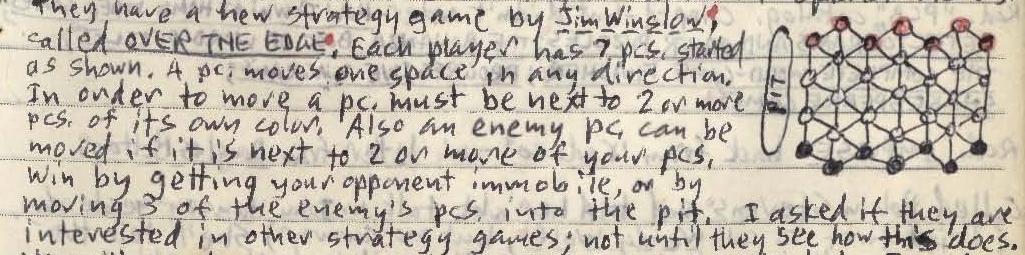 They have a new strategy game by Jim Winslow,
called OVER THE EDGE. Each player has 7 pcs. started
as shown. A pc. moves one space in any direction.
In order to move a pc. must be next to 2 or more
pcs. of its own color. Also an enemy pc. can be
moved if it is next to 2 or more of your pcs.
Win by getting your opponent immobile, or by
moving 3 of the enemy's pcs. into the pit. I asked if they are
interested in other strategy games; not until they see how this does.
PIT